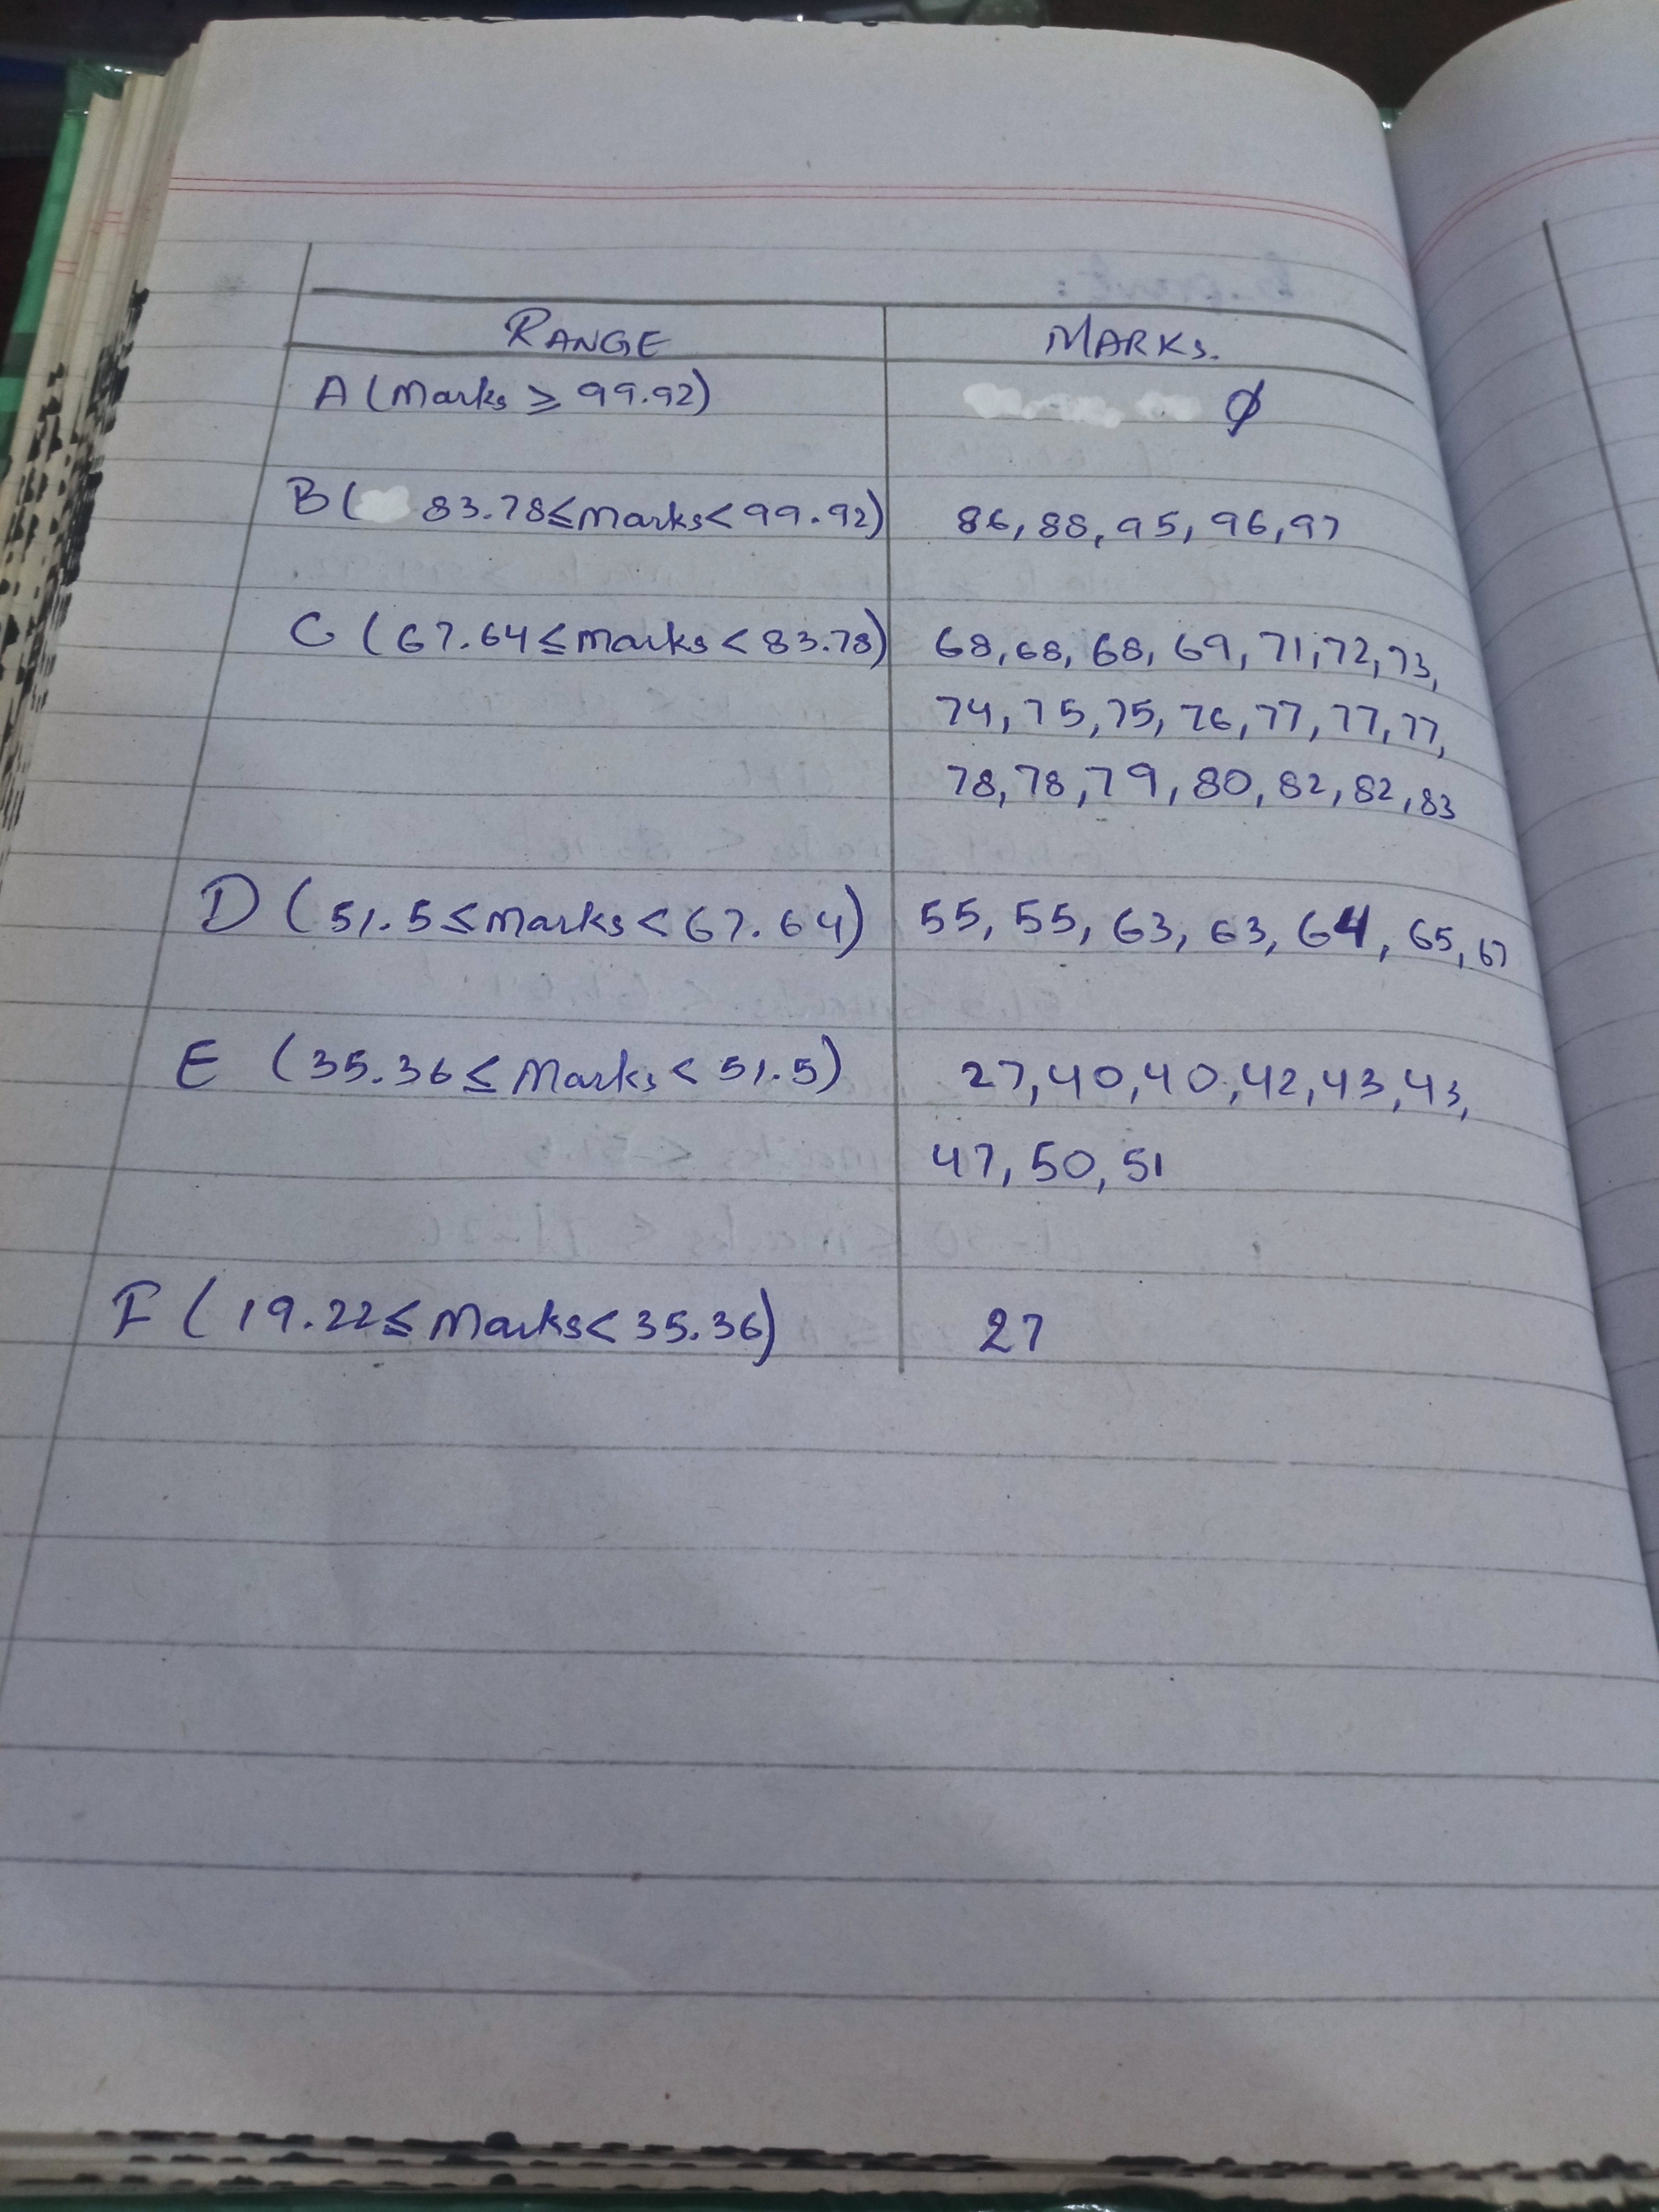 RANGE MARKS.
A (Marks ≥ 99.92) ϕ
B ( 83.78 ≤ Marks < 99.92) 86, 88, 95, 96, 97
C (67.64 ≤ Marks < 83.78) 68, 68, 68, 69, 71, 72, 73,
74, 75, 75, 76, 77, 77, 77,
78, 78, 79, 80, 82, 82, 83
D (51.5 ≤ Marks < 67.64) 55, 55, 63, 63, 64, 65, 67
E (35.36 ≤ Marks < 51.5) 27, 40, 40, 42, 43, 43,
47, 50, 51
F (19.22 ≤ Marks < 35.36) 27